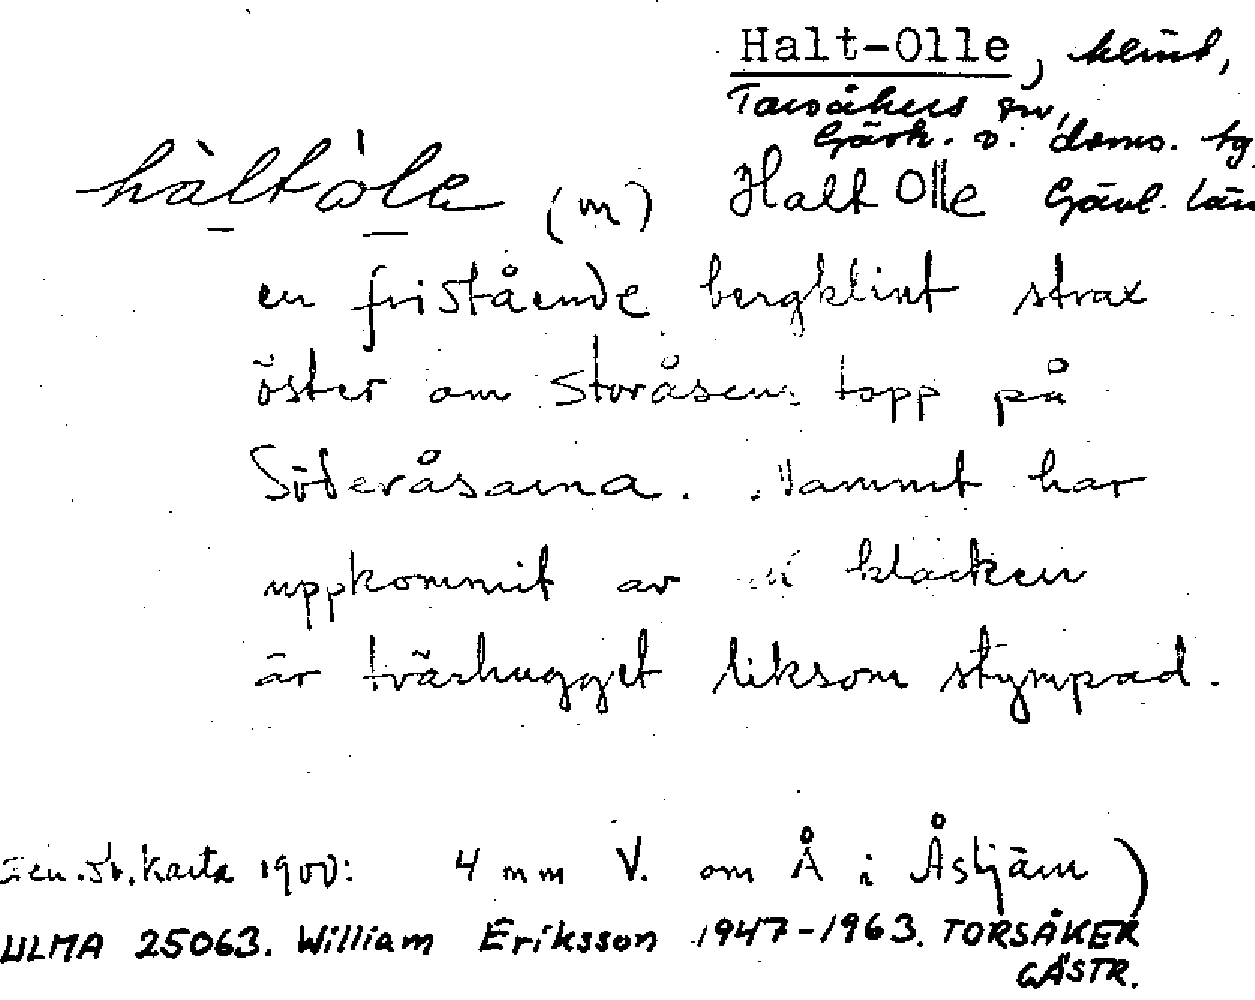 Halt-Olle, klint,
Torsåkers sn,
Gästr. ö. doms. tg
hàltòle (m) Halt Olle Gävl. län
en fristående bergklint strax
öster om Storåsens topp på
Söderåsarna. Namnet har
uppkommit av klacken
är tvärhugget liksom stympad.
Gen. st. karta 1900: 4 mm V. om Å i Åstjärn)
ULMA 25063. William Eriksson 1947-1963. TORSÅKER
GÄSTR.